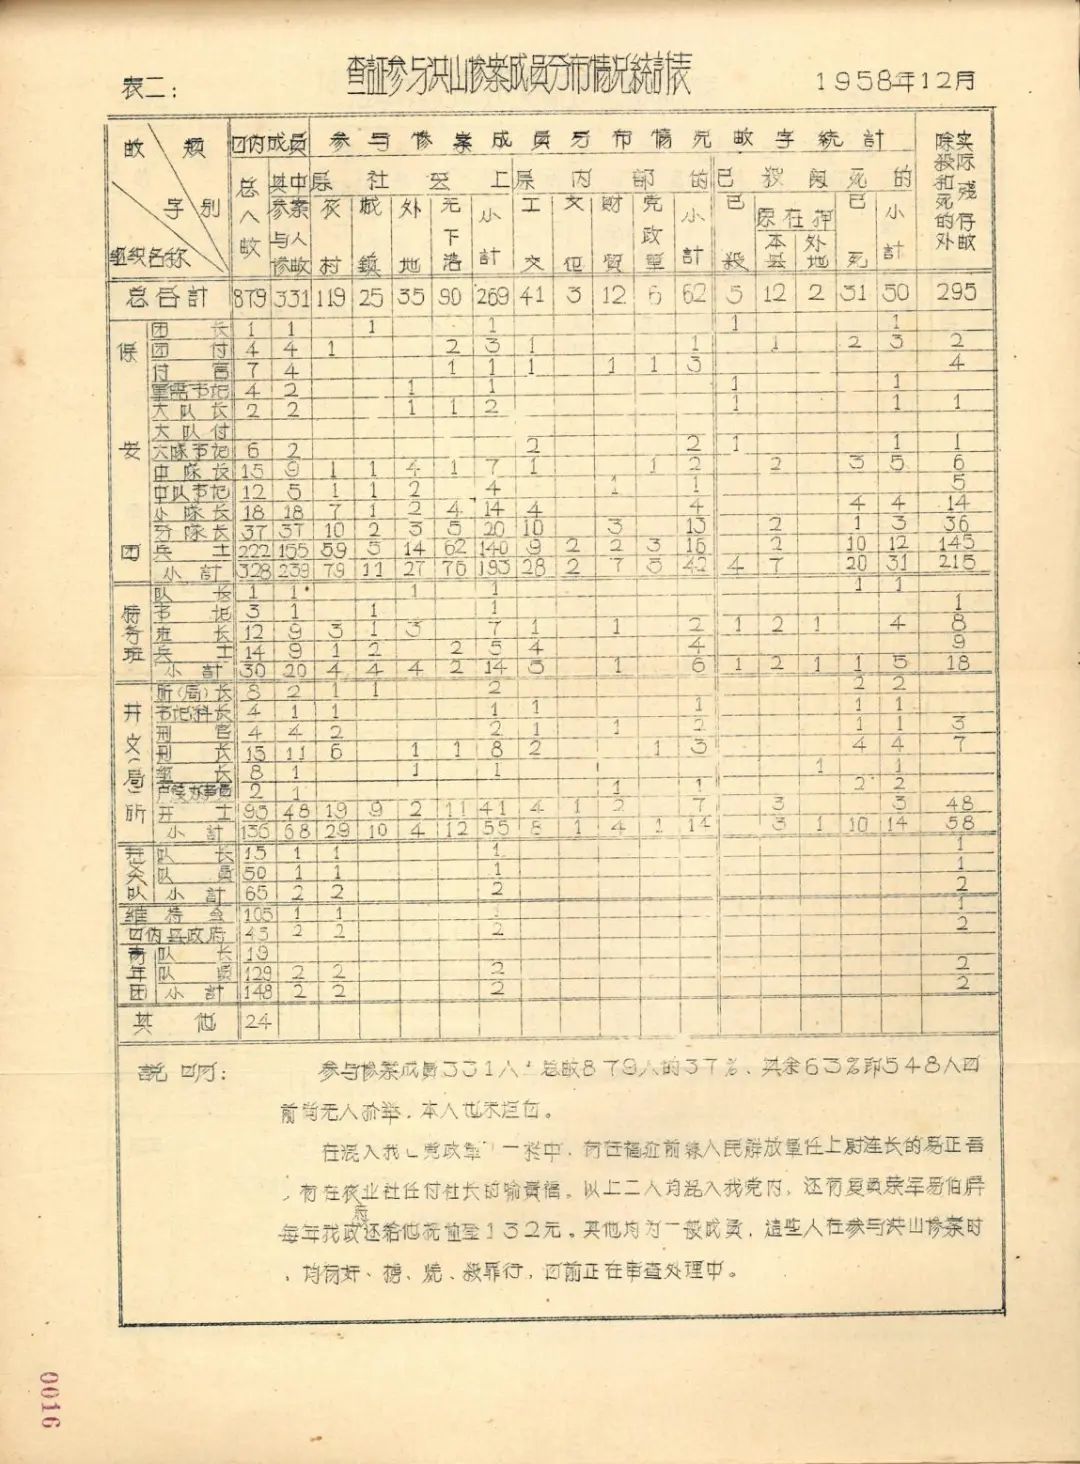 表二：
查証参与洪山惨案成員分布情况統計表
1958年12月
数 类 字 别 组织名称
団内成員 参与惨案成員分布情况数字統計 除殺和死的外实际残存数
总人数 其中参案与人惨数 居社会上 居内部的 已殺関死的
农村 城鎮 外地 无下落 小計 工交 文 財貿 党政軍 小計 已殺 原在押 本县 外地 已死 小計
总合計 879 331 119 25 35 90 269 41 3 12 6 62 5 12 2 31 50 295
保安団
団长 1 1 1 1 1 1
団付 4 4 1 2 3 1 1 1 2 3 2
付官 7 4 1 1 1 1 1 3 4
軍需书记 4 2 1 1 1 1
大队长 2 2 1 1 2 1 1 1
大队付
大隊书记 6 2 2 2 1 1 1
中隊长 15 9 1 1 4 1 7 1 1 2 2 3 5 6
中队书记 12 5 1 1 2 4 1 1 5
小隊长 18 18 7 1 2 4 14 4 4 4 4 14
分隊长 37 37 10 2 3 5 20 10 3 13 2 1 3 36
兵士 222 155 59 5 14 62 140 9 2 2 3 16 2 10 12 143
小計 328 239 79 11 27 76 193 28 2 7 5 42 4 7 20 31 215
特务班
队长 1 1 1 1 1 1
书记 3 1 1 1 1
班长 12 9 3 1 3 7 1 1 2 1 2 1 4 8
兵士 14 9 1 2 2 5 4 4 9
小計 30 20 4 4 4 2 14 5 1 6 1 2 1 1 5 18
所(局)长 8 2 1 1 2 2 2
书记科长 4 1 1 1 1 1 1 1
刑官 4 4 2 2 1 1 2 1 1 3
刑长 15 11 6 1 1 8 2 1 3 4 4 7
組长 8 1 1 1 1 1
2 1 1 1 2 2
士 95 48 19 9 2 11 41 4 1 2 7 3 3 48
小計 136 68 29 10 4 12 55 8 1 4 1 14 3 1 10 14 58
队长 15 1 1 1 1
队員 50 1 1 1 1
队小計 65 2 2 2 2
維持会 105 1 1 1 1
县政府 45 2 2 2 2
青年団
队长 19
队員 129 2 2 2 2
小計 148 2 2 2 2
其他 24
説明：
参与惨案成員331人 总数879人的37%、其余63%即548人目
前尚无人检举，本人也未坦白。
在混入我 党政軍 一 中，有在福 前線人民解放軍任上尉连长的易正吾
，有在农业社任付社长的喻 福。以上二人均混入我党内，还有复員荣军易伯屏
每年我政府还給他抚恤金132元。其他均为一般成員，這些人在参与洪山惨案时
，均有奸、擄、燒、殺罪行，目前正在审查处理中。
0016